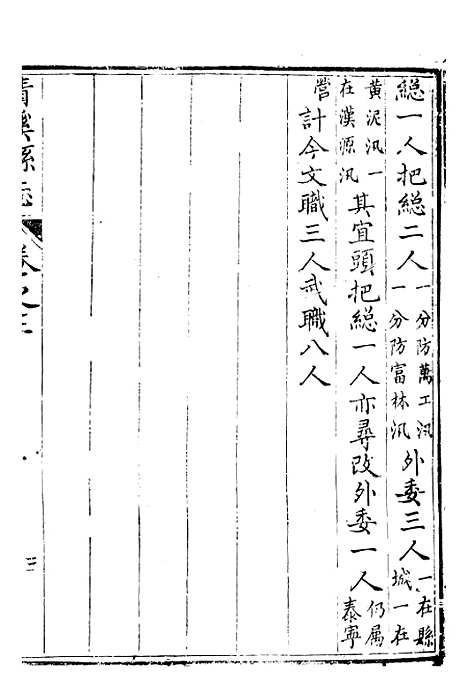 總一人把總二人一分防萬工汛一分防富林汛外委三人一在縣城一在
黃泥汛一在漢源汛其宜頭把總一人亦尋改外委一人仍属泰寧
營計今文職三人武職八人
清溪縣志
卷之三
三